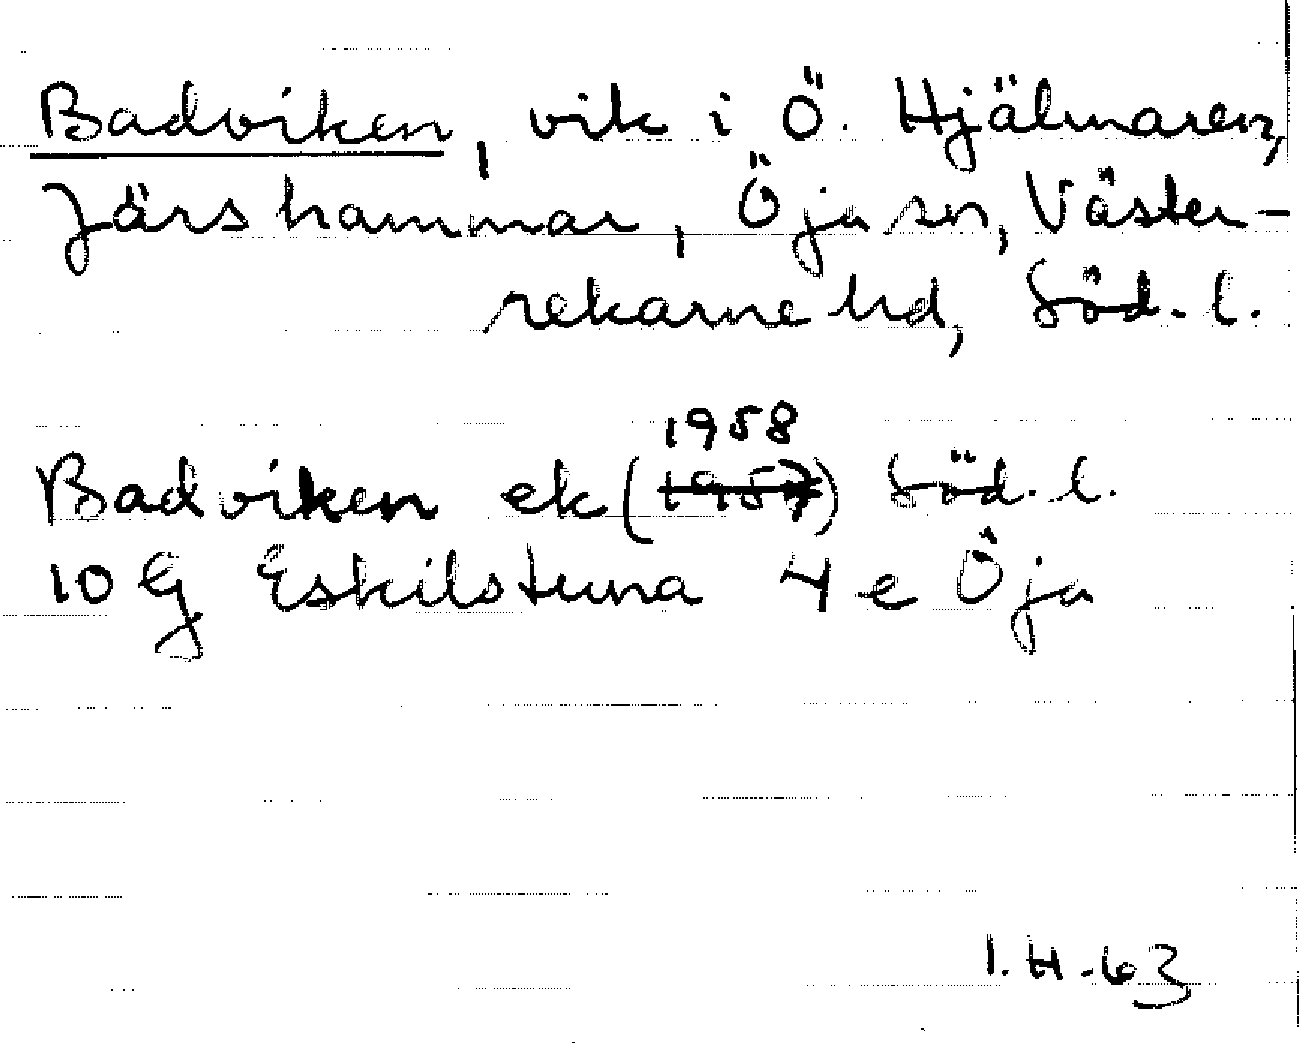 Badviken, vik i Ö. Hjälmaren,
Järshammar, Öja sn, Väster-
rekarne hd, Söd. l.
1958
Badviken ek (1957) Söd. l.
10 G Eskilstuna 4 e Öja
I. H. 63